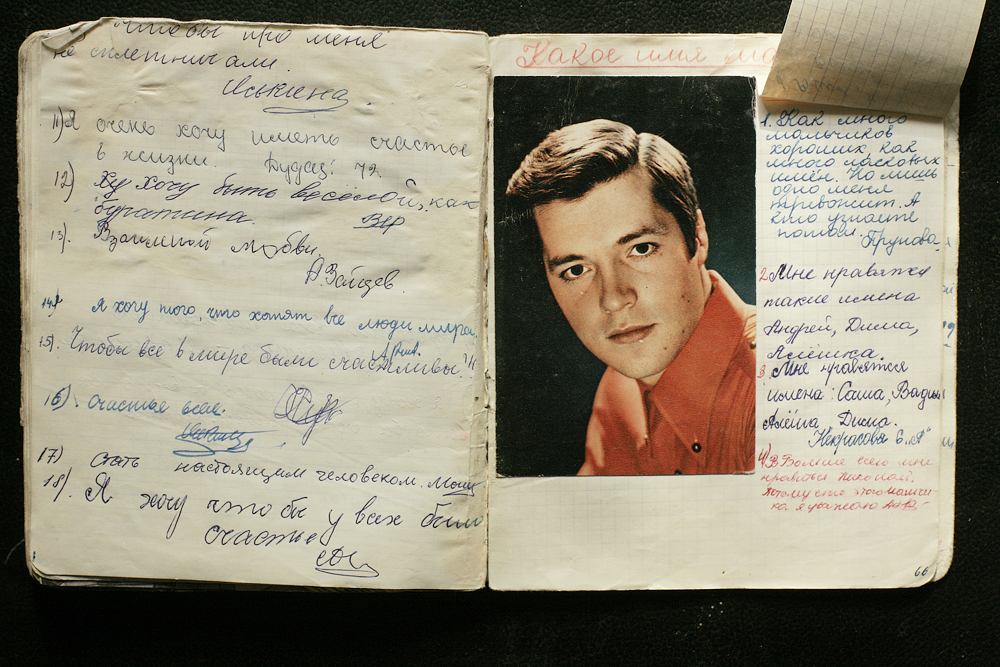 "Чтобы про меня
не сплетничали.
11) Я очень хочу иметь счастье
в жизни.
12) хочу быть весёлой, как
буратина.
13). Взаимной любви.
А Зайцев.
14) Я хочу того, что хотят все люди мира.
15). Чтобы все в мире были счастливы.
16). счастье всем.
17) стать настоящим человеком.
18). Я хочу что бы у всех было
счастье
Какое имя
1. Как много
мальчиков
хороших, как
много ласковых
имён. Но лишь
одно меня
тревожит. А
кто узнаете
потом.
2 Мне нравятся
такие имена
Андрей, Дима,
Алёшка.
3 Мне нравятся
имена: Саша, Вадим
Алёша, Дима.
Некрасова 6 "А"
4) Больше всего мне
нравится Николай.
Потому что этого мальчи
ка я уважаю
66